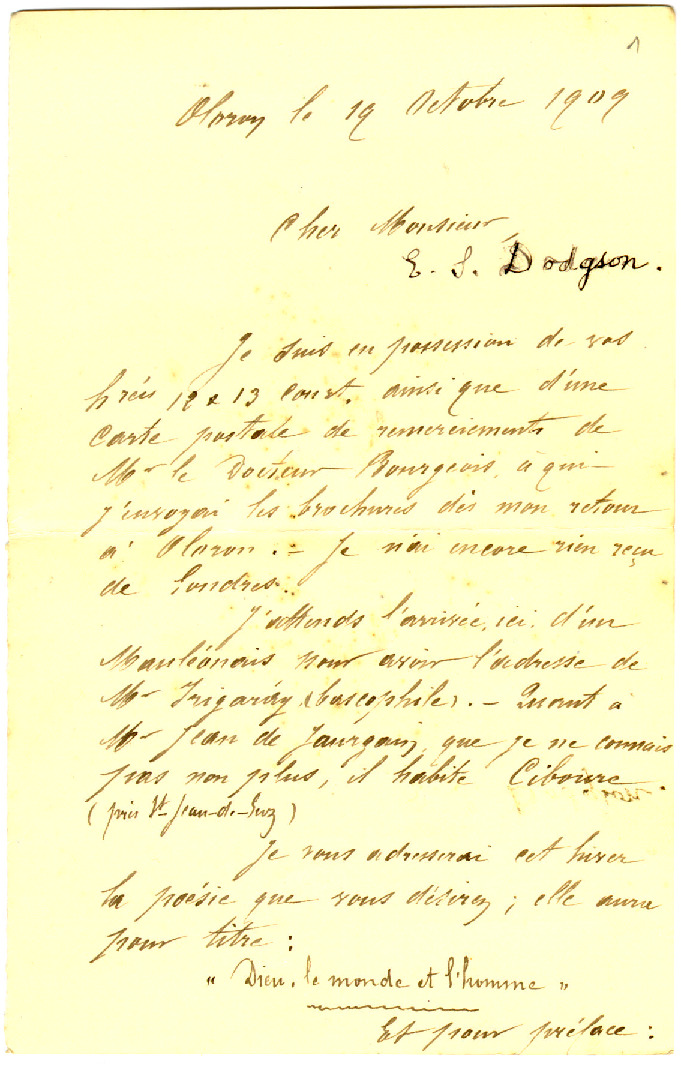 1
Oloron le 19 Octobre 1909
Cher Monsieur,
E. S. Dodgson.
Je suis en possession de vos
12 & 13 court. ainsi que d'une
Carte postale de remerciements de
Mr le Docteur Bourgeois, à qui
j'envoyai les brochures dès mon retour
à Oloron. – Je n'ai encore rien reçu
de Londres.
J'attends l'arrivée, ici, d'un
Mauléonais pour avoir l'adresse de
Mr Irigaráy (bascophile). – Quant à
Mr Jean de Jaurgain, que je ne connais
pas non plus, il habite Ciboure
(près St Jean-de-Luz)
Je vous adresserai cet hiver
la poésie que vous désirez ; elle aura
pour titre :
" Dieu, le monde et l'homme "
Et pour préface :